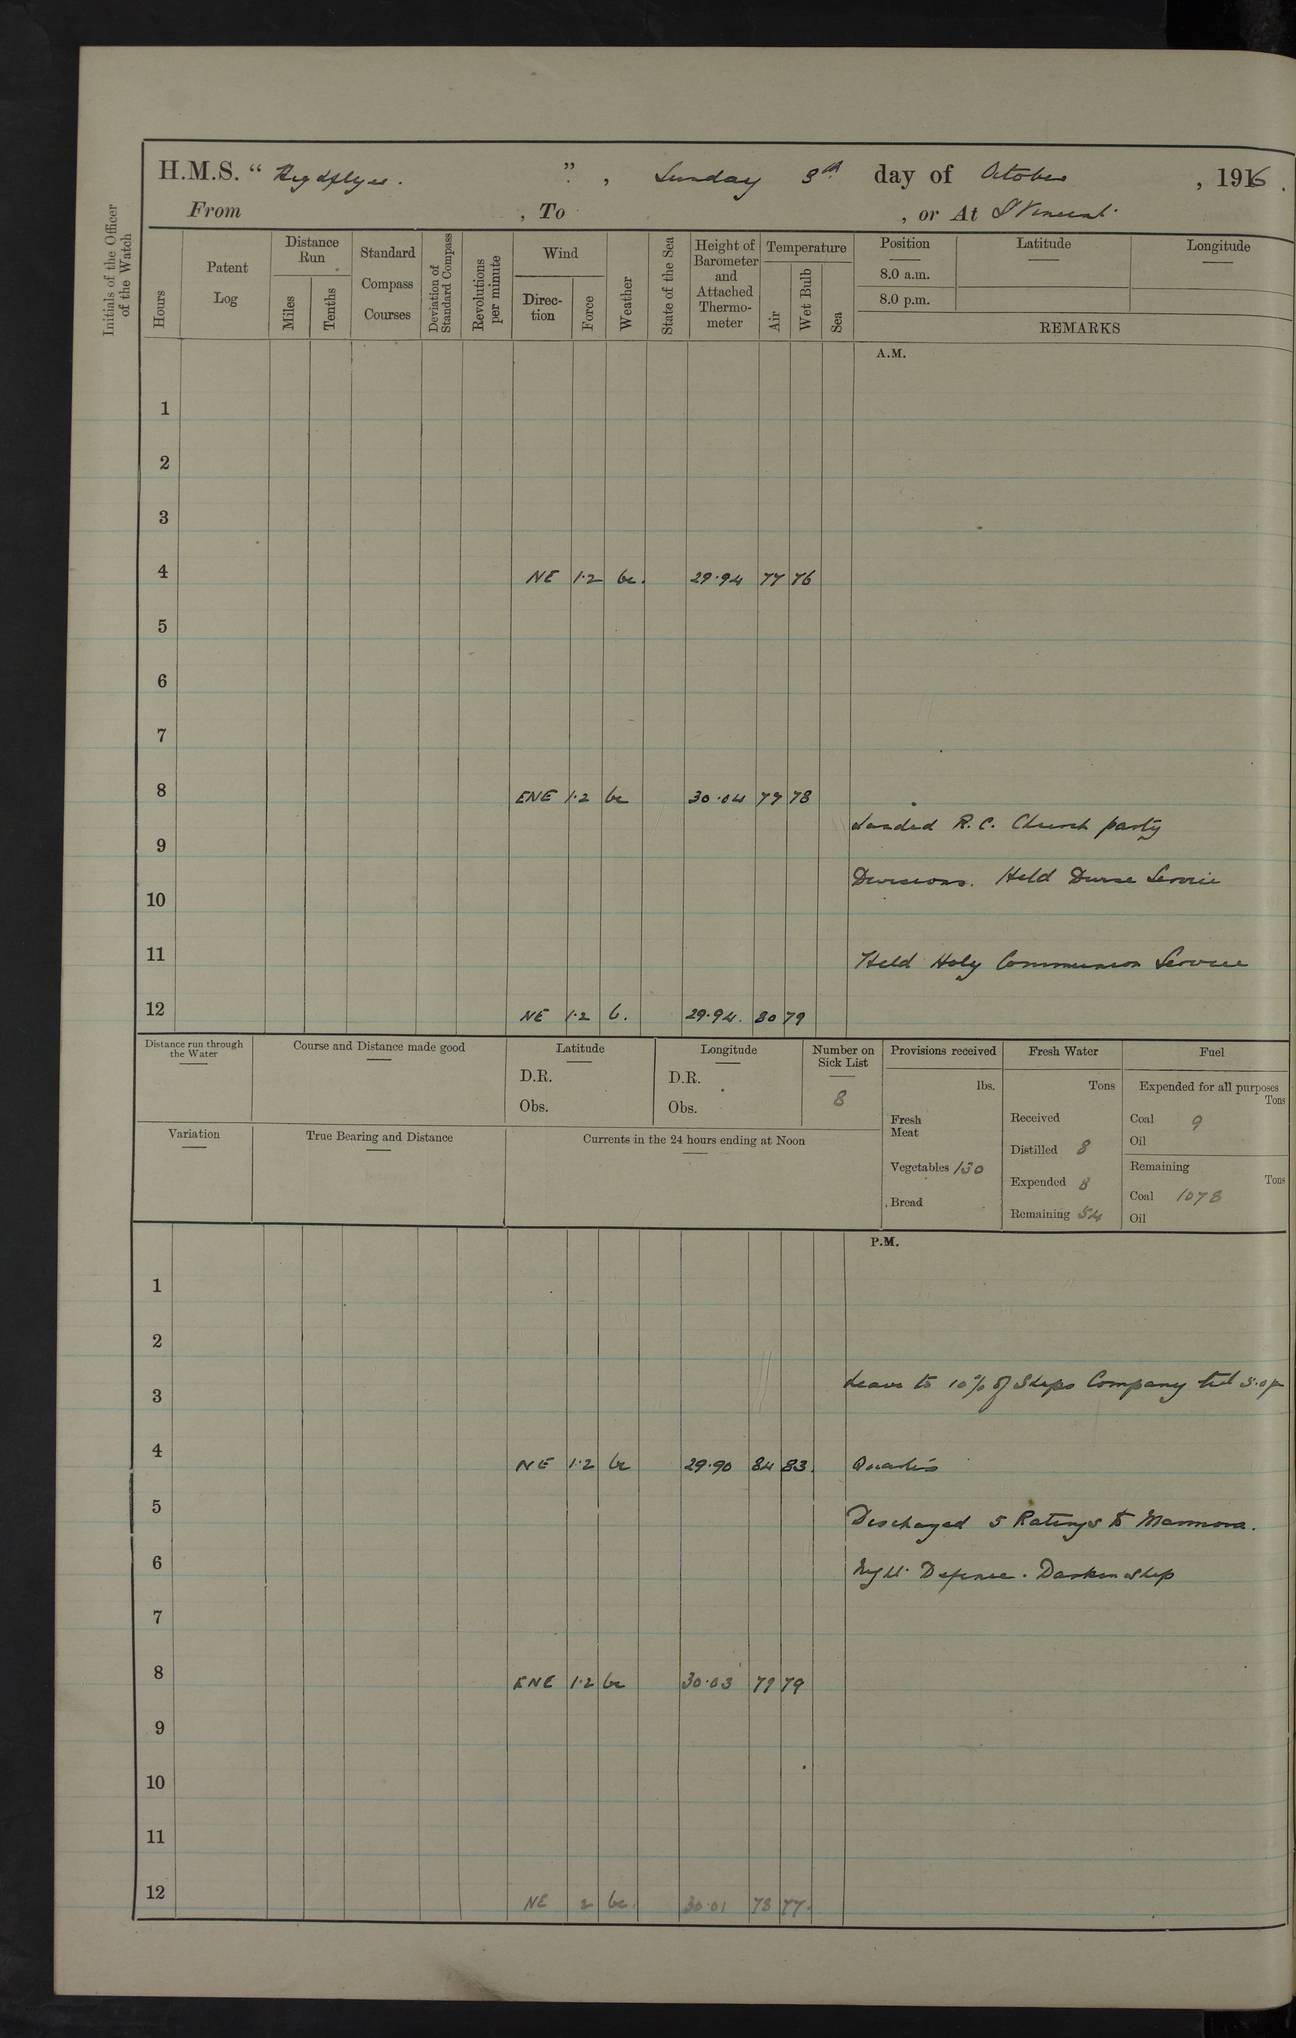 H.M.S. " Highflyer. ", Sunday 8th day of October, 1916.
From , To , or At St Vincent
Initials of the Officer of the Watch
Hours
Patent Log
Distance Run
Miles
Tenths
Standard Compass Courses
Deviation of Standard Compass
Revolutions per minute
Wind
Direc-tion
Force
Weather
State of the Sea
Height of Barometer and Attached Thermo-meter
Temperature
Air
Wet Bulb
Sea
Position
8.0 a.m.
8.0 p.m.
Latitude
Longitude
REMARKS
A.M.
1
2
3
4 NE 1·2 bc. 29·94 77 76
5
6
7
8 ENE 1·2 bc 30·04 79 78
Landed R.C. Church party
9
Divisions. Held Divine Service
10
11 Held Holy Communion Service
12 NE 1·2 b. 29·94. 80 79
Distance run through the Water
Course and Distance made good
Latitude
D.R.
Obs.
Longitude
D.R.
Obs.
Number on Sick List
8
Provisions received
lbs.
Fresh Meat
Vegetables 130
Bread
Fresh Water
Tons
Received
Distilled 8
Expended 8
Remaining 54
Fuel
Expended for all purposes
Tons
Coal 9
Oil
Remaining
Tons
Coal 1078
Oil
Variation
True Bearing and Distance
Currents in the 24 hours ending at Noon
P.M.
1
2
3 Leave to 10% of Ships Company till 5.0 p
4 NE 1·2 bc 29·90 84 83. Quarters
5 Discharged 5 Ratings to Marmora.
6 Night Defence. Darken ship
7
8 ENE 1·2 bc 30·03 79 79
9
10
11
12 NE 2 bc. 30·01 78 77.